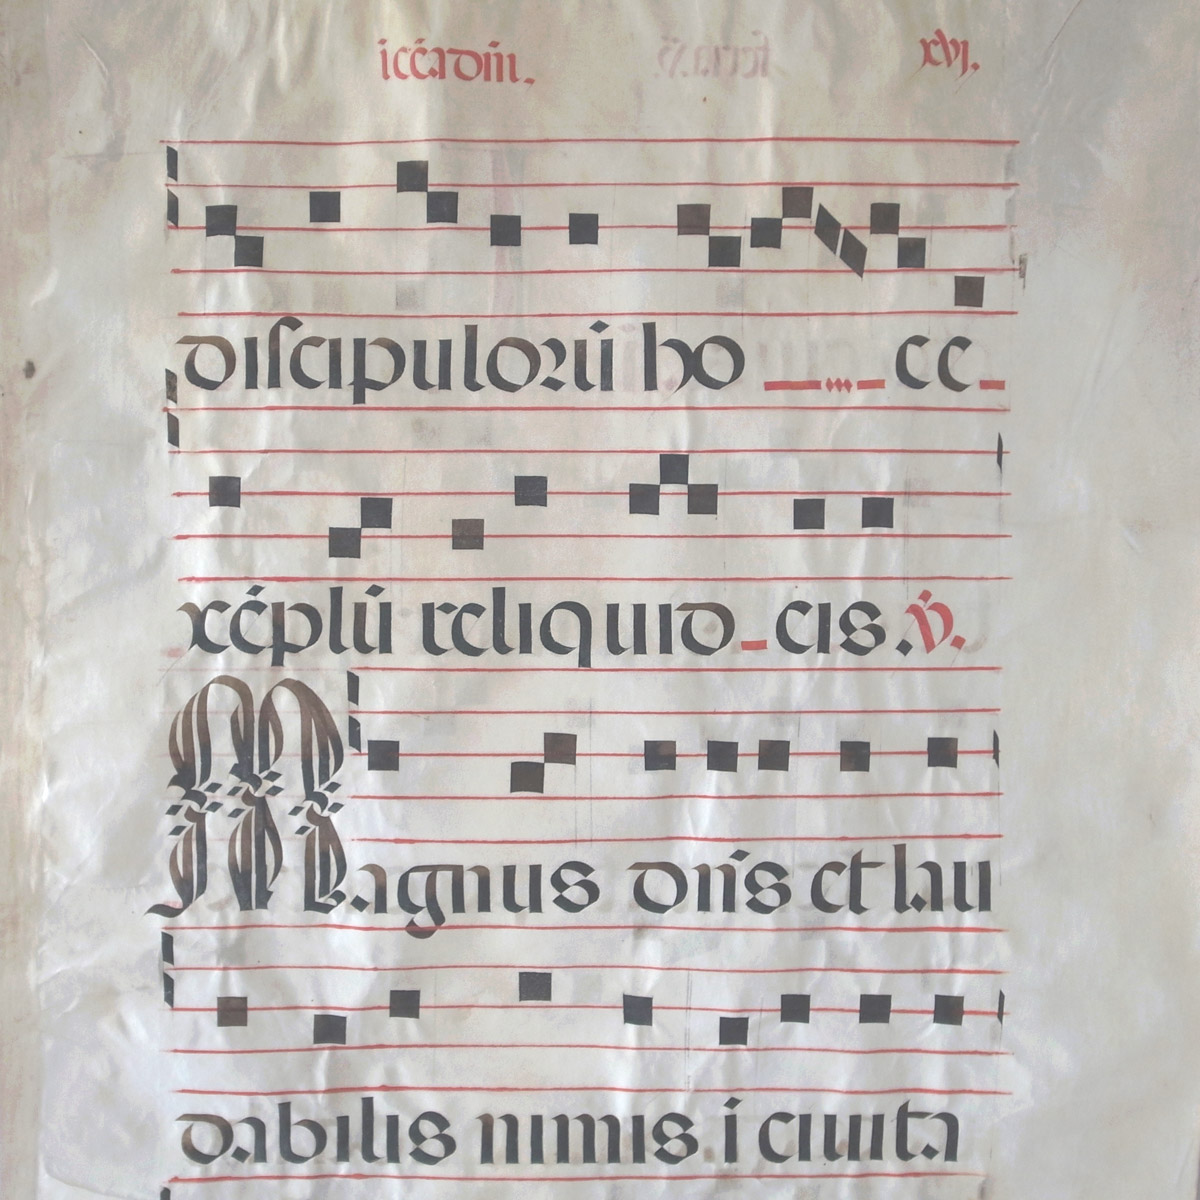 i ceĉa dñi. xvj.
discipuloꝝū ho c c
xēplū reliquid eis. ℣.
Magnus dn̄s et lau
dabilis nimis ī ciuita